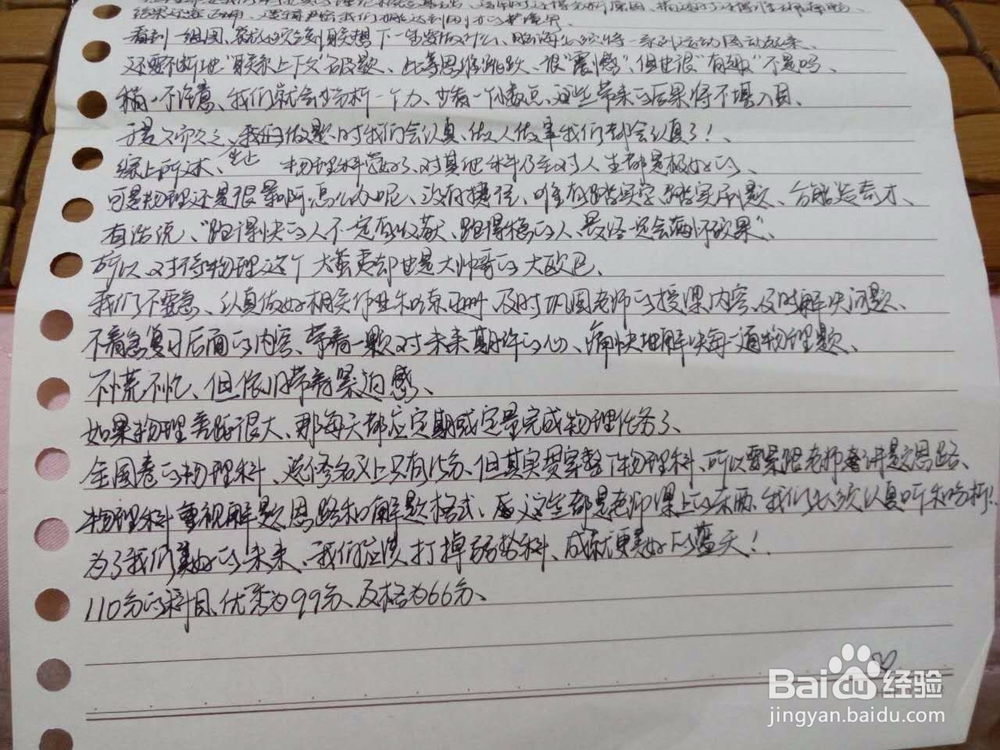 看到一组图、就必须会到联想下一步要做什么、脑海必须将一系列运动启动起来、
还要不断地"联系上下文"名段数、此等思维跳跃、很"震憾"、但也很"有趣"不是吗、
稍一不注意、我们就会少分析一个力、少看一个小重点、这些带来的后果将不堪入目、
于是久而久之、我们做题时我们会认真、做人做事我们都会认真了!、
综上所述、学止 物理科学好了、对其他科乃至对人生都是极好的、
可是物理还是很累啊、怎么办呢、没有捷径、唯有踏踏实实刷题、方能是奇才、
有话说、"跑得快的人不一定有收获、跑得稳的人、最终定会满怀硕果"、
所以、对待物理这个大萤更却也是大帅哥的大欧巴、
我们不要急、认真做好相关作业和练习册、及时巩固老师的授课内容、及时解决问题、
不着急复习后面的内容、带着一颗对未来期许的心、痛快地解决每一道物理题、
不慌不忙、但依旧带着紧迫感、
如果物理差距很大、那每天都应定期或定量完成物理任务了、
全国卷的物理科、选修名义上只有15分、但其实贯穿整个物理科、所以要紧跟老师讲题思路、
物理科重视解题思路和解题格式、而这些都是老师课上的东西、我们必须认真听和分析!
为了我们美好的未来、我们应该打掉弱势科、成就更美好的蓝天!
110分的科目、优秀为99分、及格为66分、
Baidu 经验
jingyan.baidu.com